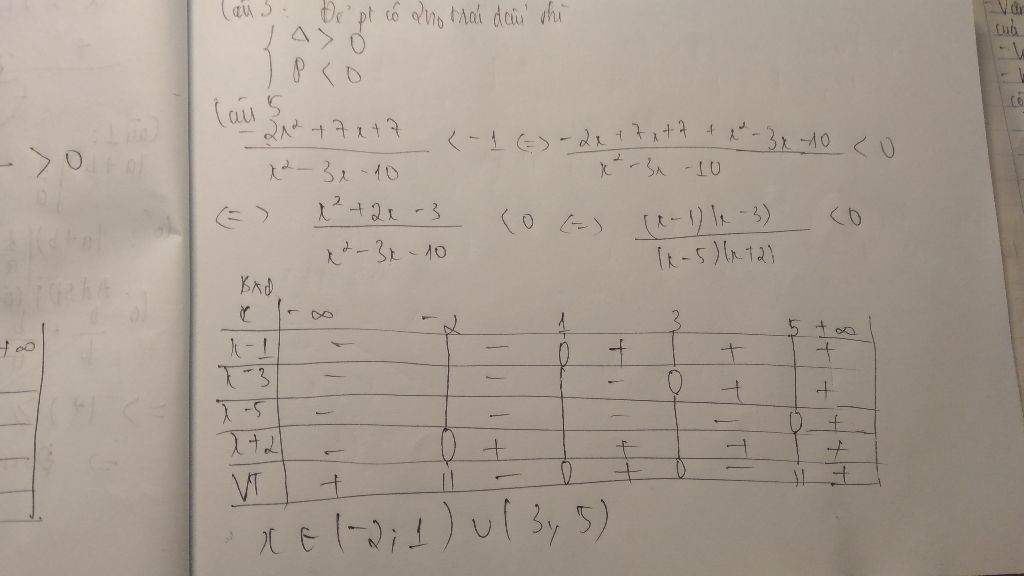 Câu 3: Để pt có 2 no trái dấu thì
{ Δ > 0
P < 0
Câu 5
-2x² + 7x + 7 / x² - 3x - 10 < -1 <=> -2x + 7x + 7 + x² - 3x - 10 / x² - 3x - 10 < 0
<=> x² + 2x - 3 / x² - 3x - 10 < 0 <=> (x - 1)(x - 3) / (x - 5)(x + 2) < 0
BXD
x -∞ -2 1 3 5 +∞
x - 1 - - 0 + + +
x - 3 - - - 0 + +
x - 5 - - - - 0 +
x + 2 - 0 + + + +
VT + || - 0 + 0 - || +
x ∈ (-2; 1) ∪ (3; 5)
> 0
+∞